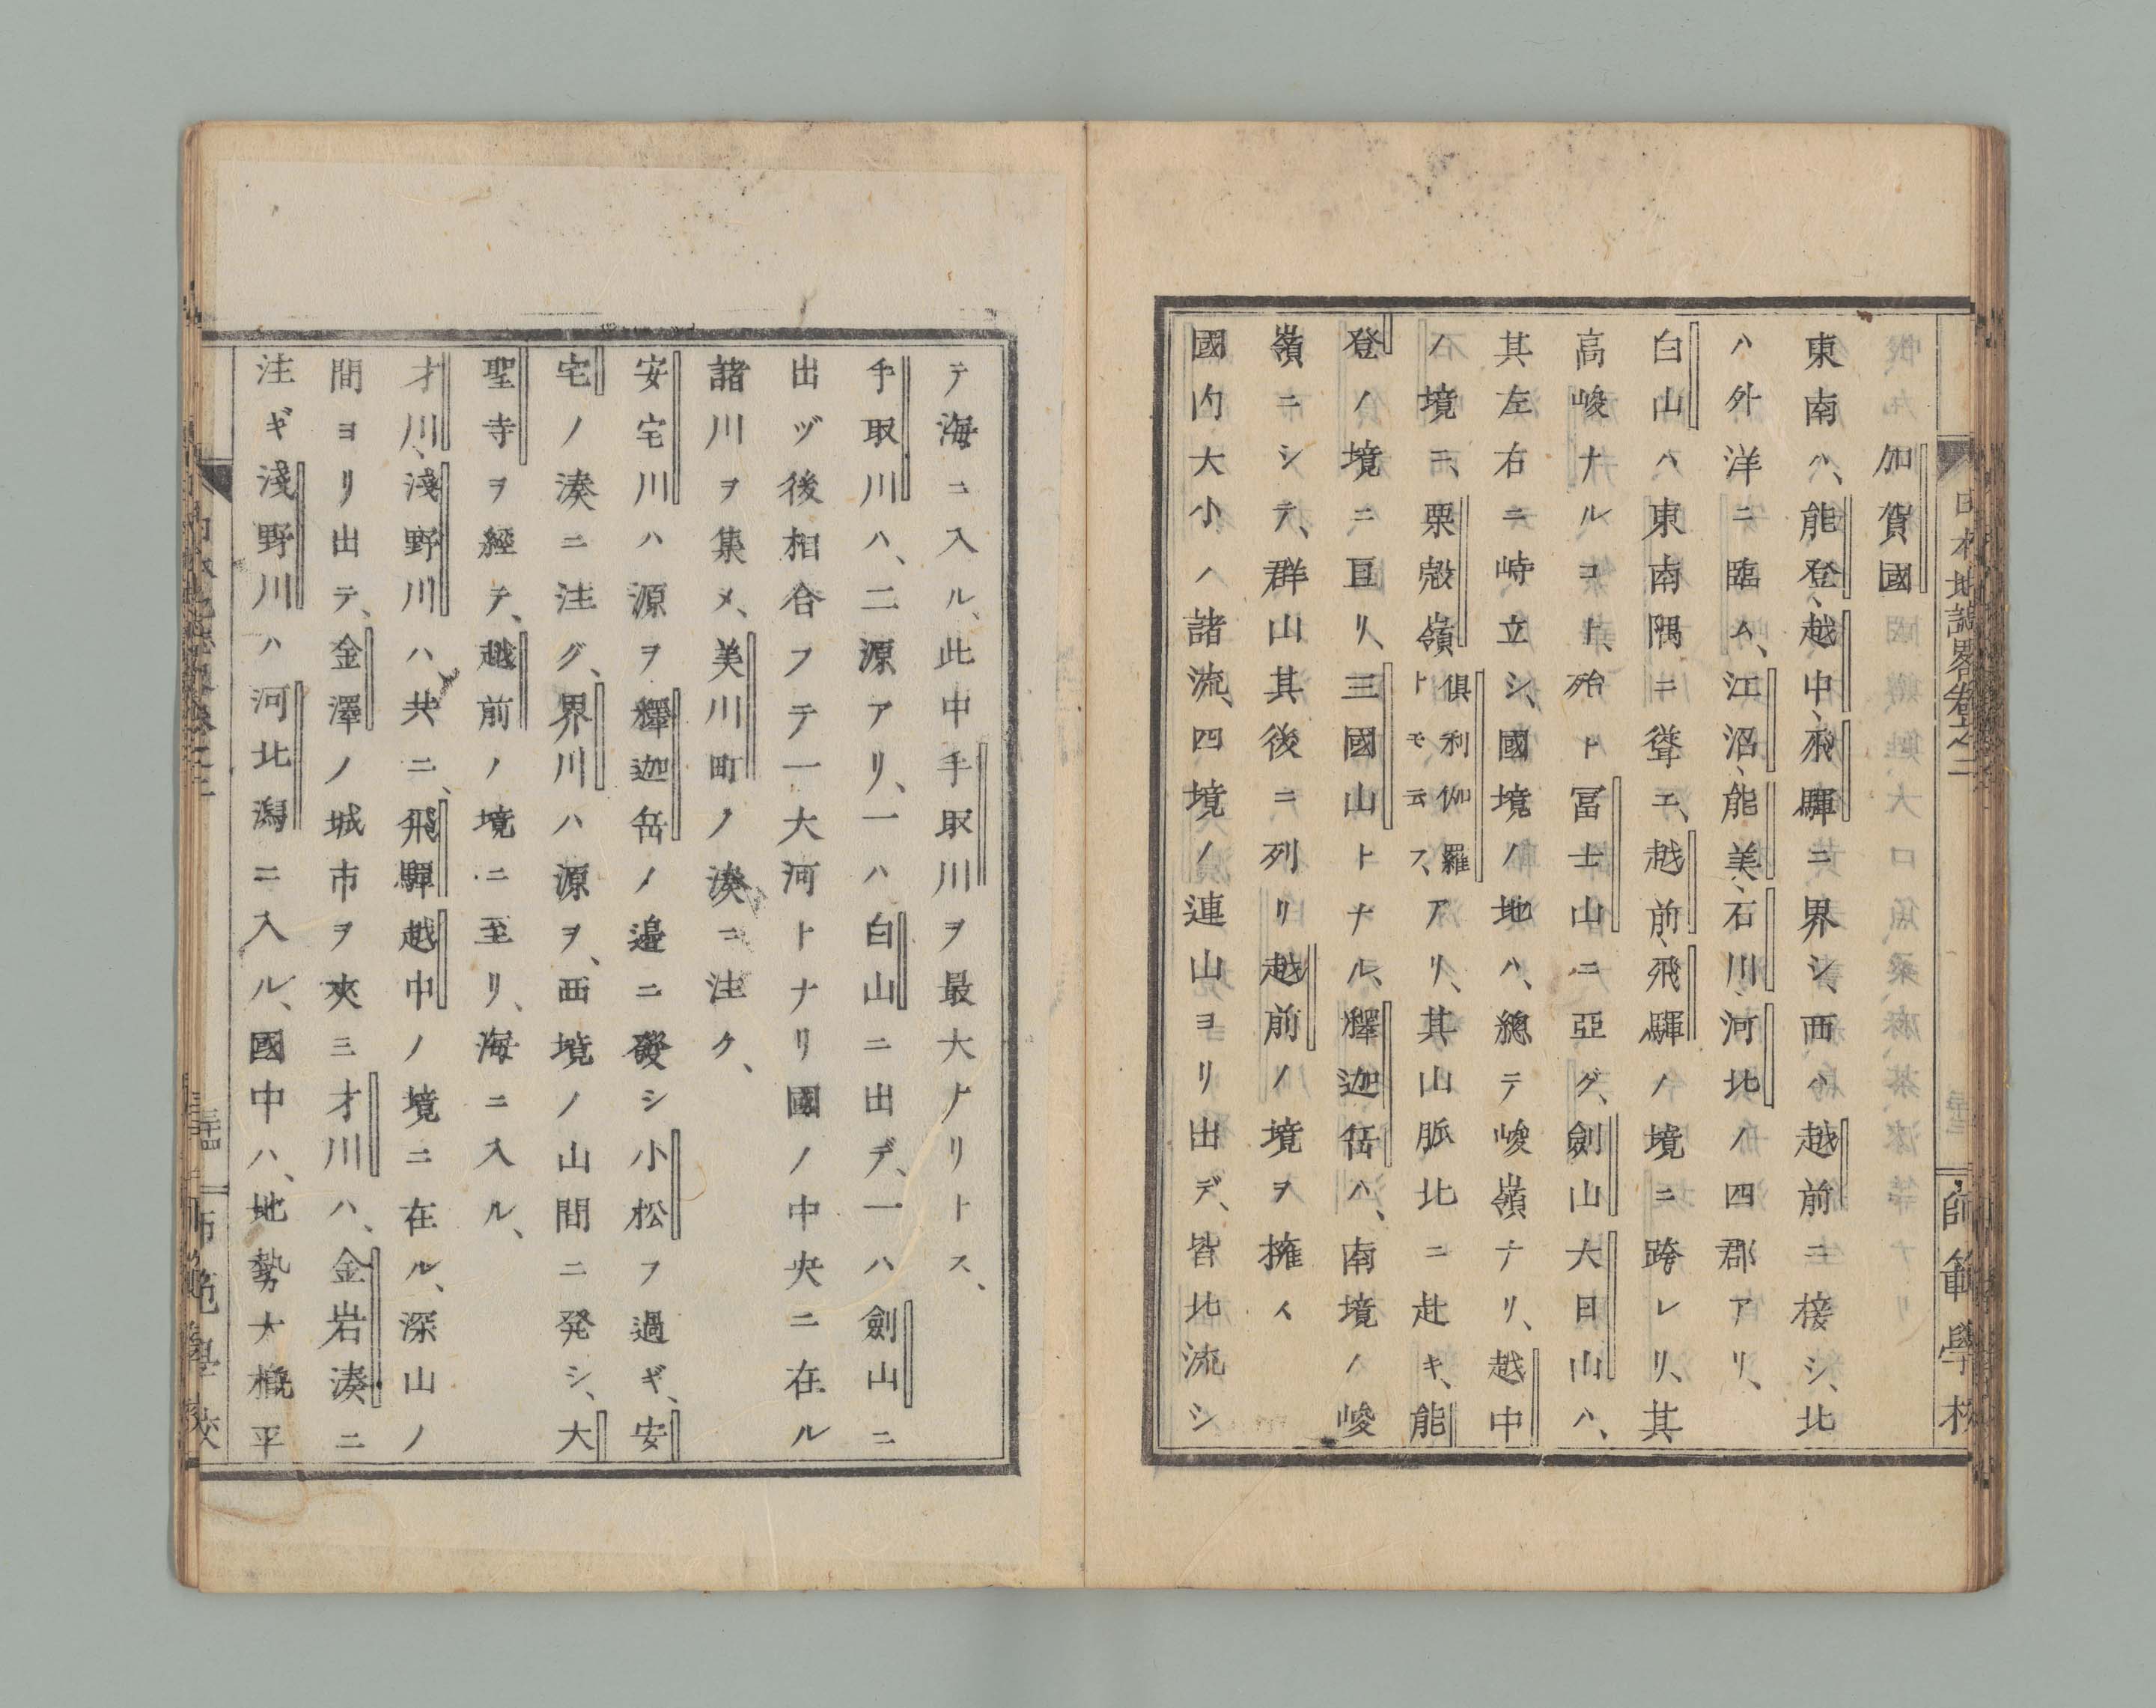 加賀國
東南ハ、能登、越中、飛驒ニ界シ、西ハ越前ニ接シ、北
ハ外洋ニ臨ム、江沼、能美、石川、河北ノ四郡アリ、
白山ハ東南隅ニ聳エ、越前、飛驒ノ境ニ跨レリ、其
高峻ナルコト、殆ト冨士山ニ亞グ、劍山大日山ハ、
其左右ニ峙立シ、國境ノ地ハ、總テ峻嶺ナリ、越中
ノ境ニ、栗殻嶺倶利伽羅トモ云フ、アリ、其山脈北ニ赴キ、能
登ノ境ニ亘リ、三國山トナル、釋迦岳ハ、南境ノ峻
嶺ニシテ、群山其後ニ列リ越前ノ境ヲ擁ス
國内大小ノ諸流、四境ノ連山ヨリ出デ、皆北流シ
日本地誌畧卷之三
師範學校
テ海ニ入ル、此中手取川ヲ最大ナリトス、
手取川ハ、二源アリ、一ハ白山ニ出デ、一ハ劍山ニ
出ヅ後相合フテ一大河トナリ國ノ中央ニ在ル
諸川ヲ集メ、美川町ノ湊ニ注ク、
安宅川ハ源ヲ釋迦岳ノ邉ニ發シ小松ヲ過ギ、安
宅ノ湊ニ注グ、界川ハ源ヲ、西境ノ山間ニ発シ、大
聖寺ヲ經テ、越前ノ境ニ至リ、海ニ入ル、
才川、淺野川ハ共ニ、飛驒越中ノ境ニ在ル、深山ノ
間ヨリ出テ、金澤ノ城市ヲ夾ミ才川ハ、金岩湊ニ
注ギ淺野川ハ河北潟ニ入ル、國中ハ、地勢大概平
師範學校